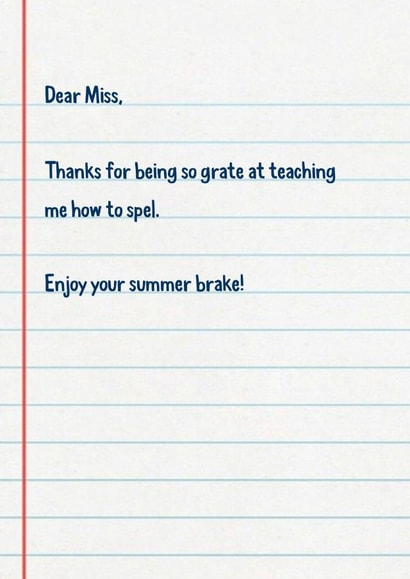 Dear Miss,
Thanks for being so grate at teaching
me how to spel.
Enjoy your summer brake!